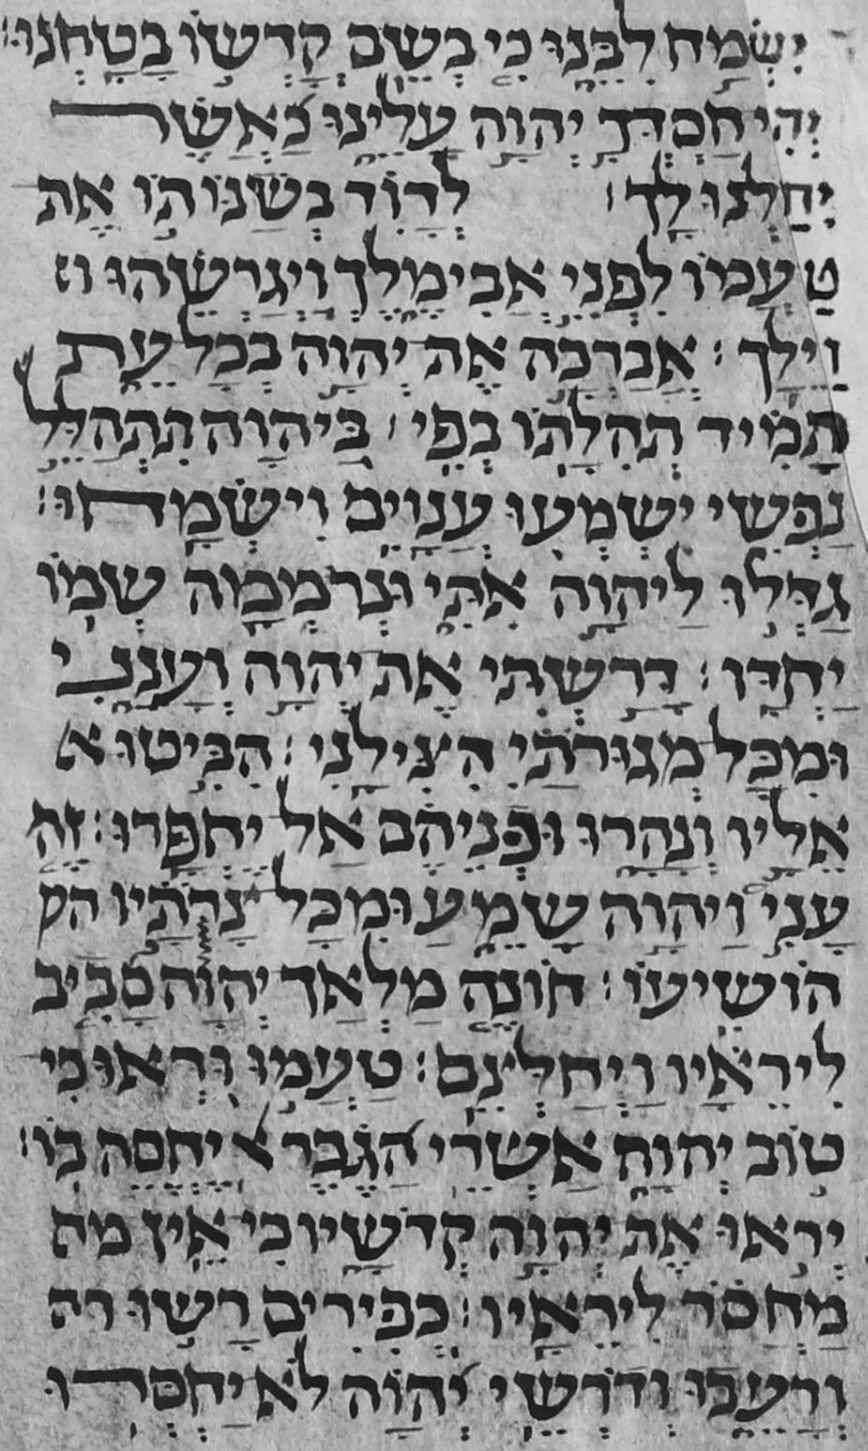 יִשְׂמַח לִבֵּנוּ כִּי בְשֵׁם קָדְשׁוֹ בָטָחְנוּ׃
יְהִי חַסְדְּךָ יְהוָה עָלֵינוּ כַּאֲשֶׁר
יִחַלְנוּ לָךְ׃ לְדָוִד בְּשַׁנּוֹתוֹ אֶת
טַעְמוֹ לִפְנֵי אֲבִימֶלֶךְ וַיְגָרֲשֵׁהוּ וי
וַיֵּלַךְ׃ אֲבָרֲכָה אֶת יְהוָה בְּכָל עֵת
תָּמִיד תְּהִלָּתוֹ בְּפִי׃ בַּיהוָה תִּתְהַלֵּל
נַפְשִׁי יִשְׁמְעוּ עֲנָוִים וְיִשְׂמָחוּ׃
גַּדְּלוּ לַיהוָה אִתִּי וּנְרֹמְמָה שְׁמוֹ
יַחְדָּו׃ דָּרַשְׁתִּי אֶת יְהוָה וְעָנָנִי
וּמִכָּל מְגוּרֹתַי הִצִּילָנִי׃ הִבִּיטוּ א
אֵלָיו וְנָהָרוּ וּפְנֵיהֶם אַל יֶחְפָּרוּ׃ זֶה
עָנִי וַיהוָה שָׁמֵעַ וּמִכָּל צָרֹתָיו הק
הוֹשִׁיעוֹ׃ חֹונֶה מַלְאַךְ יְהוָה סָבִיב
לִירֵאָיו וַיְחַלְּצֵם׃ טַעֲמוּ וּרְאוּ כִּי
טוֹב יְהוָה אַשְׁרֵי הַגֶּבֶר יֶחֱסֶה בּוֹ׃
יְראוּ אֶת יְהוָה קְדֹשָׁיו כִּי אֵין מח
מַחְסֹר לִירֵאָיו׃ כְּפִירִים רָשׁוּ רה
וְרָעֵבוּ וְדֹרְשֵׁי יְהוָה לֹא יַחְסְרוּ